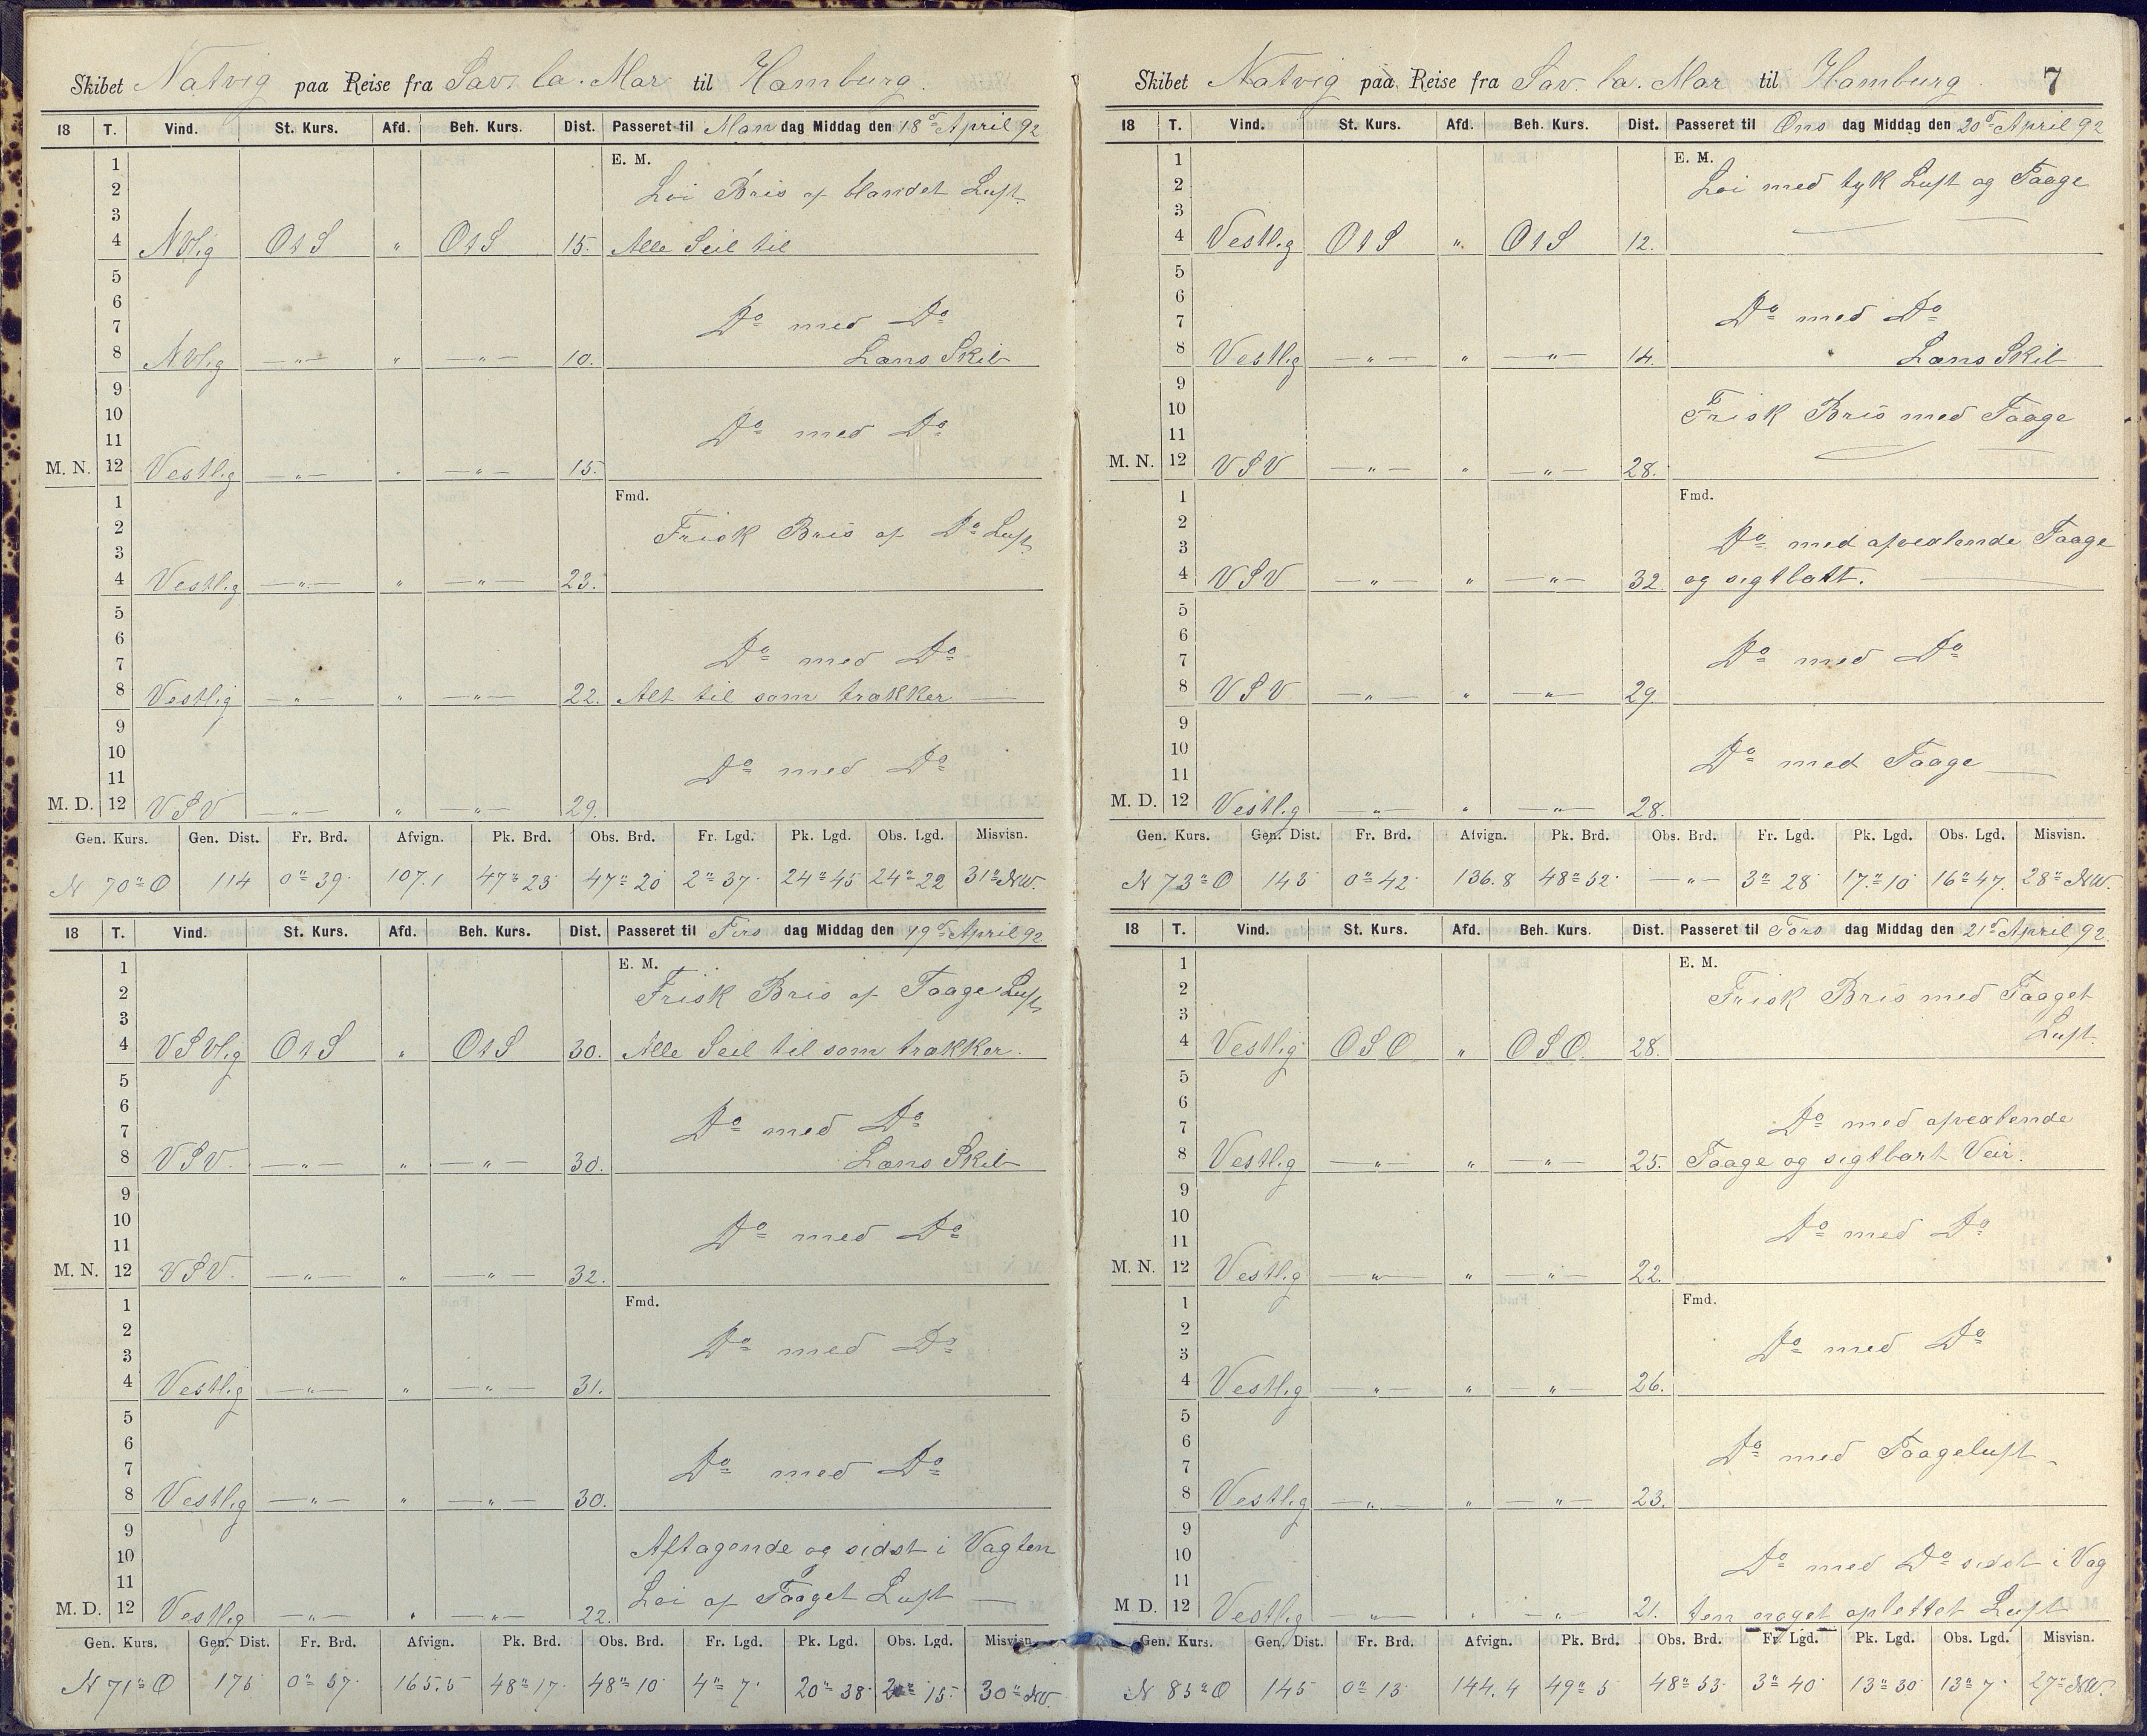 Skibet Natvig paa Reise fra Sav. la. Mar til Hamburg.
18 T. Vind. St. Kurs. Afd. Beh. Kurs. Dist. Passeret til Mandag Middag den 18d April 92
1 E. M.
2 Løi Bris af blandet Luft
3
4 NVlig OtS " OtS 15. Alle Seil til
5
6
7 Do med Do
8 NVlig —"— " —"— 10. Læns Skib
9
10
11 Do med Do
M. N. 12 Vestlig —"— " —"— 15.
1 Fmd.
2 Frisk Bris af Do Luft
3
4 Vestlig —"— " —"— 23.
5
6
7 Do med Do
8 Vestlig —"— " —"— 22. Alt til som trækker —
9
10
11 Do med Do
M. D. 12 VSV —"— " —"— 29.
Gen. Kurs. Gen. Dist. Fr. Brd. Afvign. Pk. Brd. Obs. Brd. Fr. Lgd. Pk. Lgd. Obs. Lgd. Misvisn.
N 70° O 114 0° 39' 107.1 47° 23 47° 20 2° 37' 24° 45 24° 22 31° NW.
18 T. Vind. St. Kurs. Afd. Beh. Kurs. Dist. Passeret til Tirsdag Middag den 19d April 92
1 E. M.
2 Frisk Bris af Taage Luft
3
4 VSVlig OtS " OtS 30. Alle Seil til som trækker.
5
6
7 Do med Do
8 VSV. —"— " —"— 30. Læns Skib
9
10
11 Do med Do
M. N. 12 VSV. —"— " —"— 32.
1 Fmd.
2 Do med Do
3
4 Vestlig —"— " —"— 31.
5
6
7 Do med Do
8 Vestlig —"— " —"— 30.
9
10 Aftagende og sidst i Vagten
11
M. D. 12 Vestlig —"— " —"— 22. Løi af Taaget Luft —
Gen. Kurs. Gen. Dist. Fr. Brd. Afvign. Pk. Brd. Obs. Brd. Fr. Lgd. Pk. Lgd. Obs. Lgd. Misvisn.
N 71° O 175 0° 57' 165.5 48° 17' 48° 10 4° 7' 20° 38' 15' 30° NW.
Skibet Natvig paa Reise fra Sav. la. Mar til Hamburg 7
18 T. Vind. St. Kurs. Afd. Beh. Kurs. Dist. Passeret til Onsdag Middag den 20d April 92
1 E. M.
2 Løi med tyk Luft og Taage
3
4 Vestlig OtS " OtS 12.
5
6
7 Do med Do
8 Vestlig —"— " —"— 14. Læns Skib
9
10 Frisk Bris med Taage
11
M. N. 12 VSV —"— " —"— 28.
1 Fmd.
2
3 Do med afvexlende Taage
4 VSV —"— " —"— 32. og sigtbatt.
5
6
7 Do med Do
8 VSV —"— " —"— 29.
9
10
11 Do med Taage —
M. D. 12 Vestlig —"— " —"— 28.
Gen. Kurs. Gen. Dist. Fr. Brd. Afvign. Pk. Brd. Obs. Brd. Fr. Lgd. Pk. Lgd. Obs. Lgd. Misvisn.
N 73° O 143 0° 42' 136.8 48° 52' —"— 3° 28' 17° 10' 16° 47' 28° NW.
18 T. Vind. St. Kurs. Afd. Beh. Kurs. Dist. Passeret til Torsdag Middag den 21d April 92
1 E. M.
2 Frisk Bris med Taaget
3
4 Vestlig OSO " OSO. 28. Luft
5
6
7 Do med afvexlende
8 Vestlig —"— " —"— 25. Taage og sigtbart Veir.
9
10
11 Do med Do
M. N. 12 Vestlig —"— " —"— 22.
1 Fmd.
2
3 Do med Do
4 Vestlig —"— " —"— 26.
5
6
7 Do med Taageluft
8 Vestlig —"— " —"— 23.
9
10 Do med Do sidst i Vag
11
M D. 12 Vestlig —"— " —"— 21. ten noget oplettet Luft
Gen. Kurs. Gen. Dist. Fr. Brd. Afvign. Pk. Brd. Obs. Brd. Fr. Lgd. Pk. Lgd. Obs. Lgd. Misvisn.
N 85° O 145 0° 13' 144.4 49° 5 48° 53' 3° 40' 13° 30' 13° 7' 27° NW.